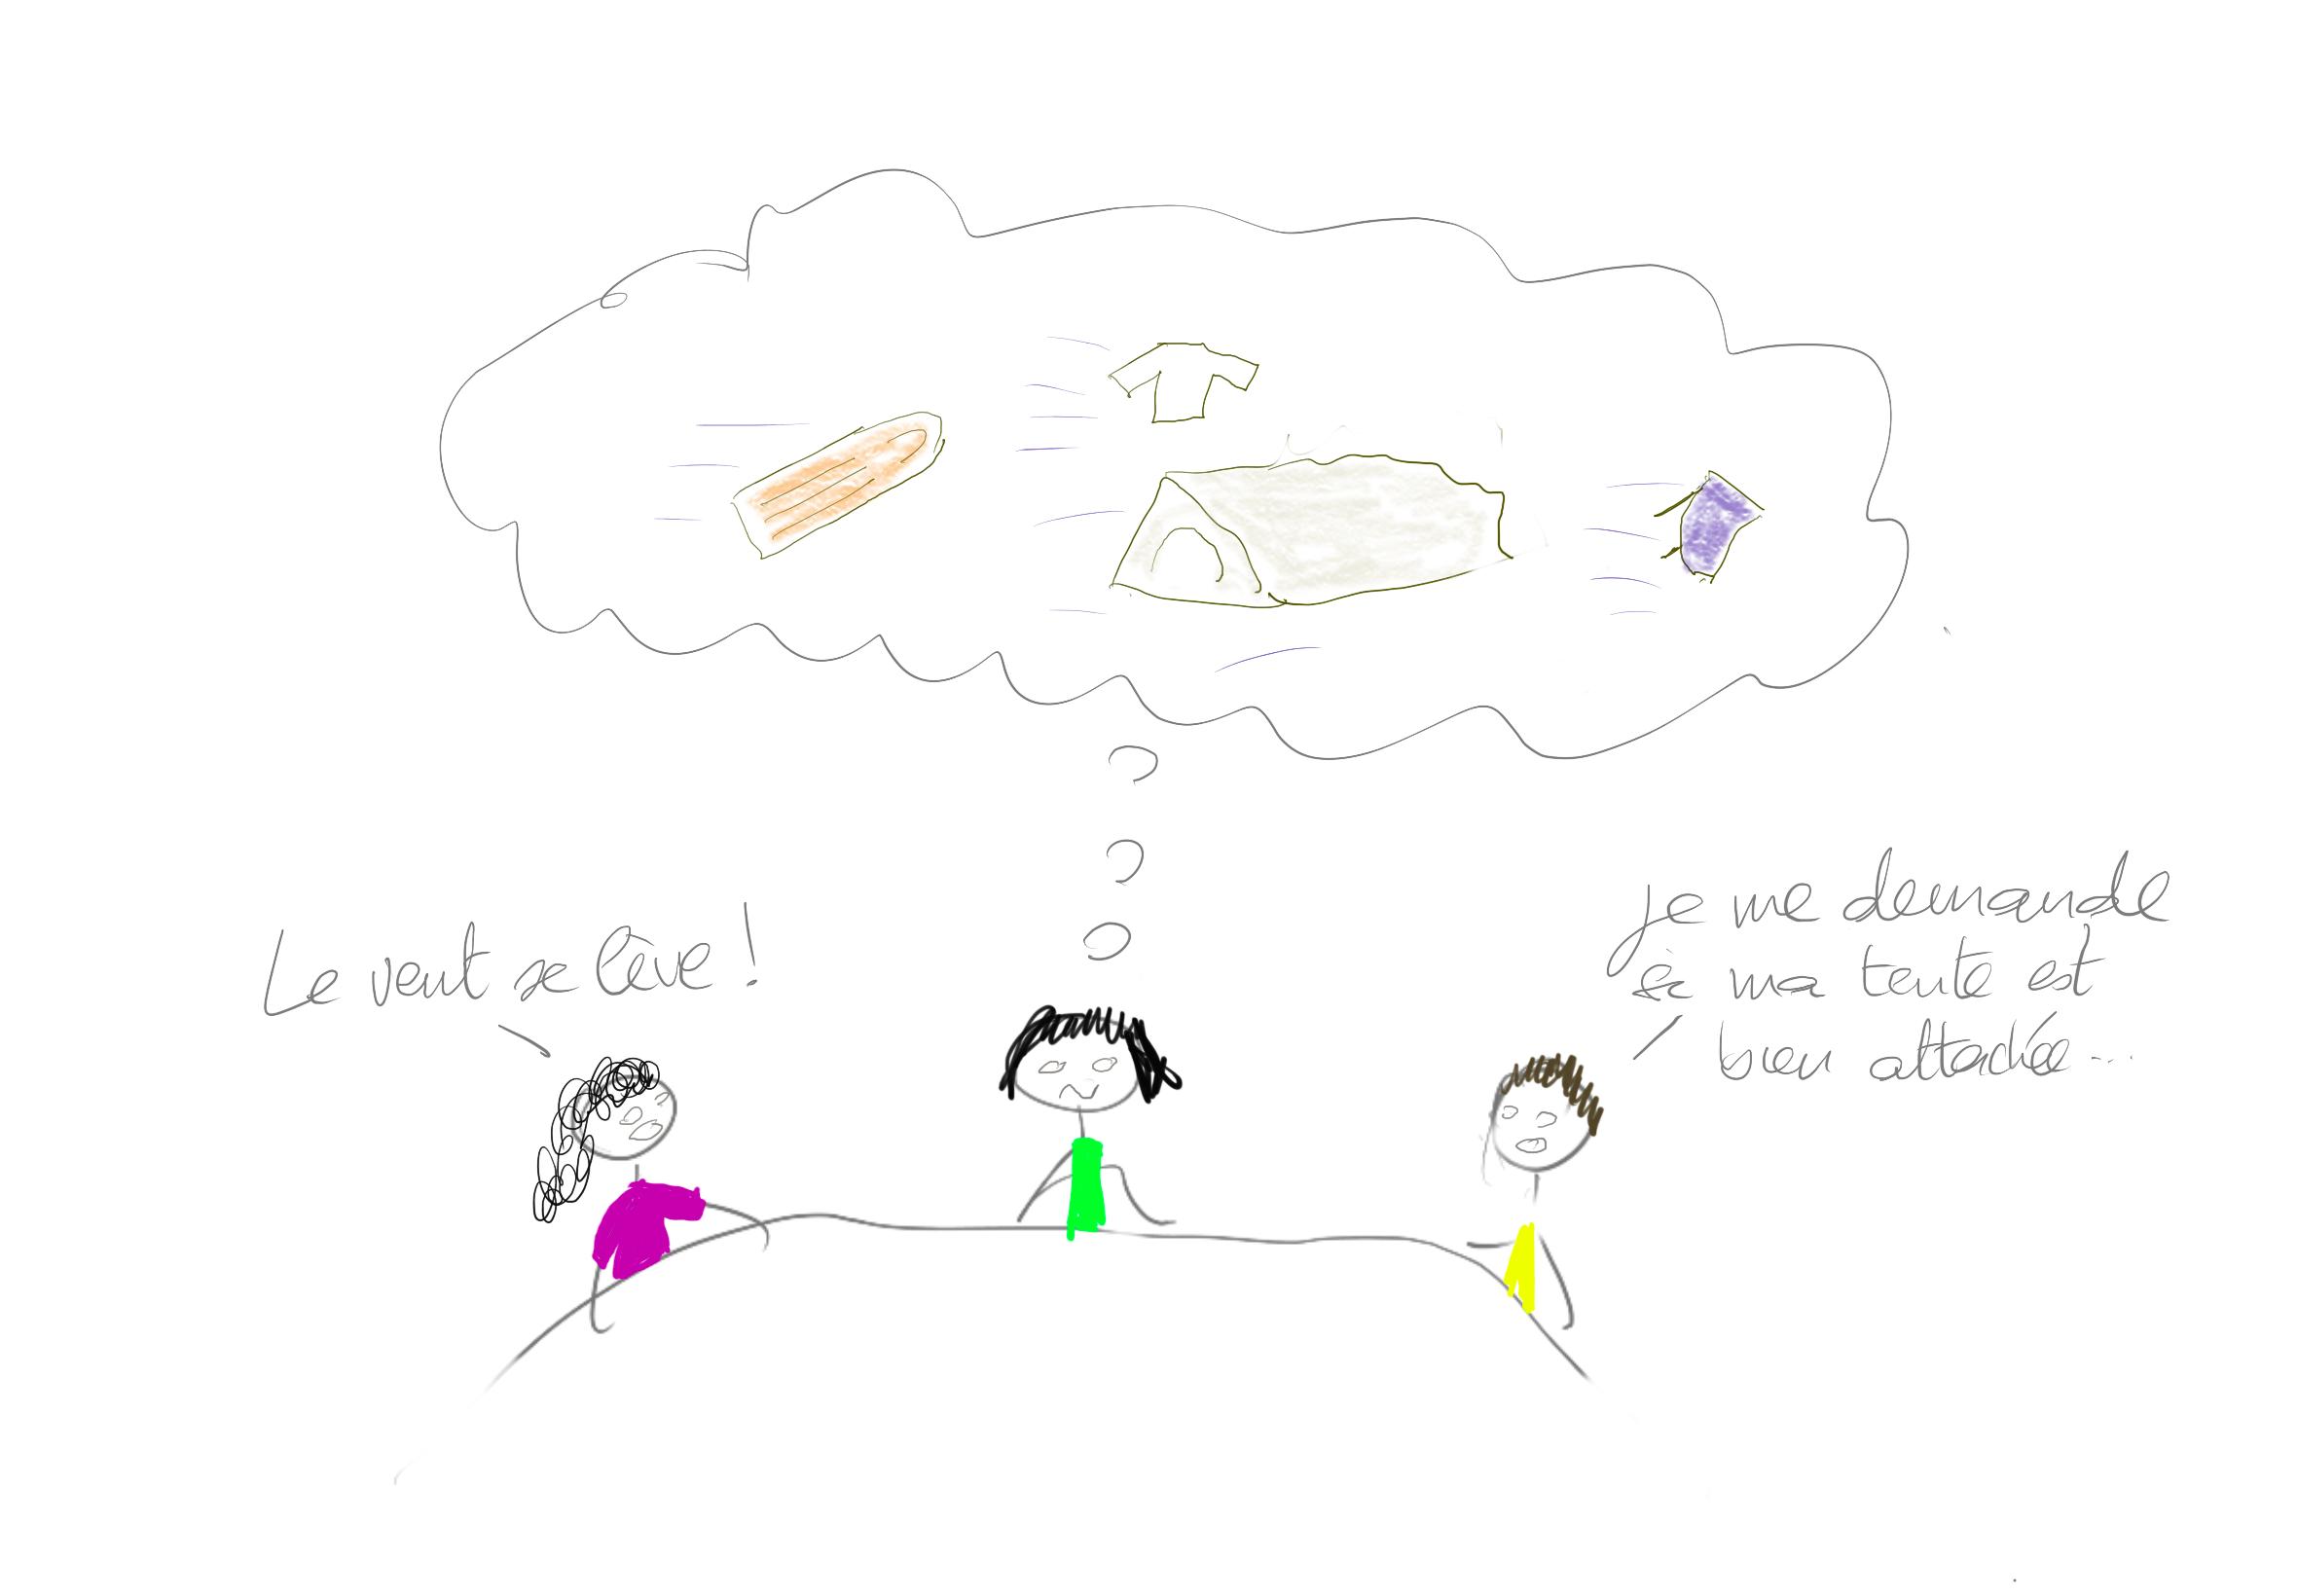 Le vent se lève !
Je me demande
si ma tente est
bien attachée...